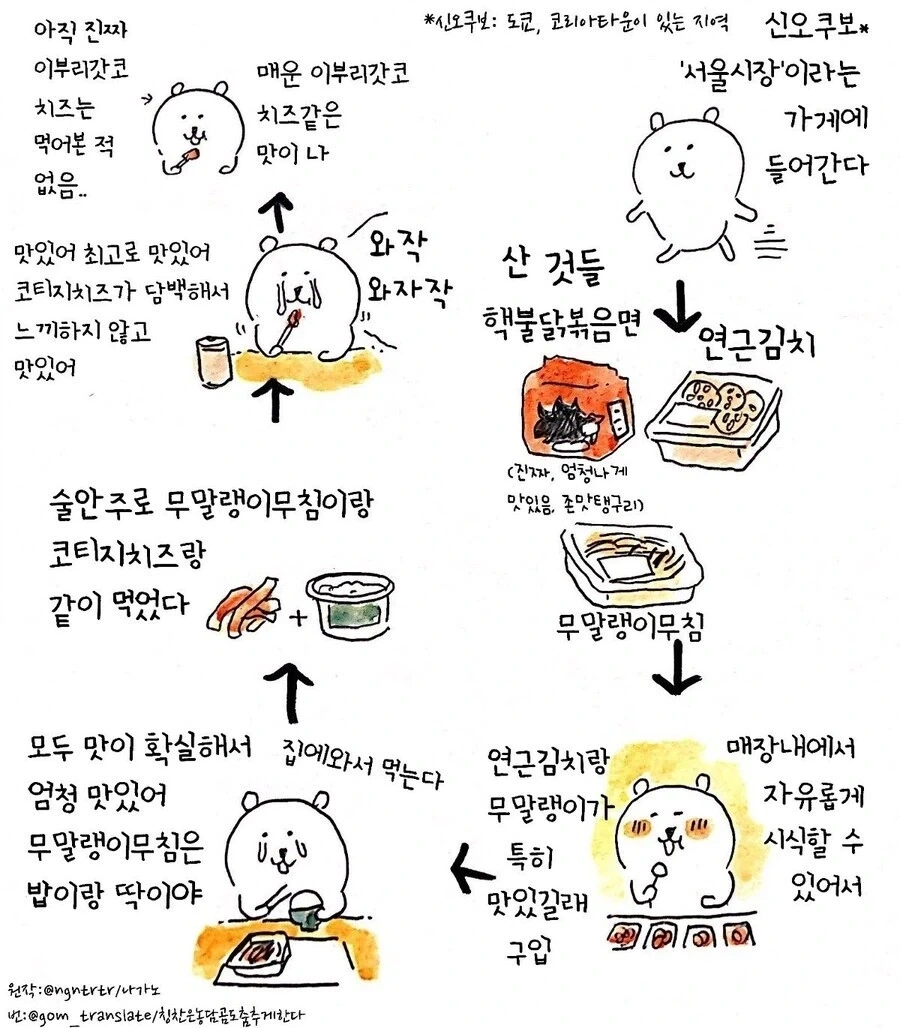 *신오쿠보: 도쿄, 코리아타운이 있는 지역
신오쿠보*
'서울시장'이라는
가게에
들어간다
산 것들
핵불닭볶음면
(진짜, 엄청나게
맛있음, 존맛탱구리)
연근김치
무말랭이무침
매장내에서
자유롭게
시식할 수
있어서
연근김치랑
무말랭이가
특히
맛있길래
구입
집에와서 먹는다
모두 맛이 확실해서
엄청 맛있어
무말랭이무침은
밥이랑 딱이야
술안주로 무말랭이무침이랑
코티지치즈랑
같이 먹었다
+
와작
와자작
맛있어 최고로 맛있어
코티지치즈가 담백해서
느끼하지 않고
맛있어
매운 이부리갓코
치즈같은
맛이 나
아직 진짜
이부리갓코
치즈는
먹어본 적
없음..
원작:@ngntrtr/나가노
번:@gom_translate/칭찬은농담곰도춤추게한다